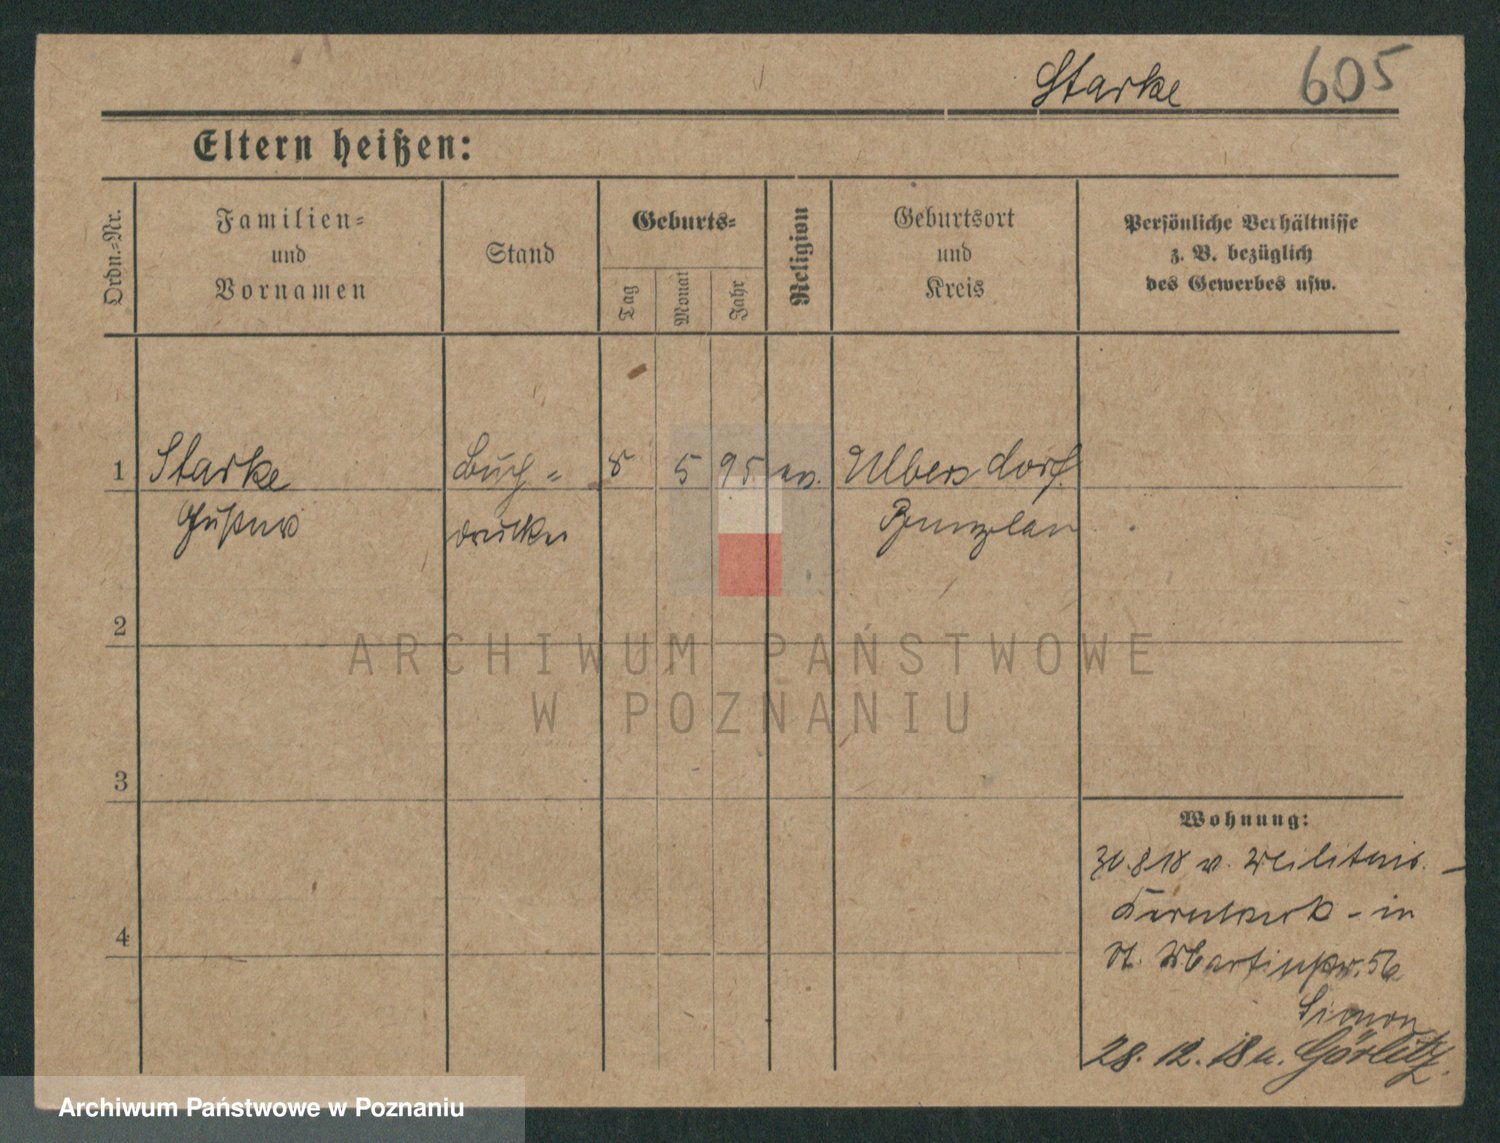 Starke 605
Eltern heißen:
Ordn.-Nr.
Familien-
und
Vornamen
Stand
Geburts-
Tag
Monat
Jahr
Religion
Geburtsort
und
Kreis
Persönliche Verhältnisse
z. B. bezüglich
des Gewerbes usw.
1 Starke Buch- 8 5 95 ev. Ulbersdorf
Gustav drucker Bunzlau
2
ARCHIWUM PAŃSTWOWE
W POZNANIU
3
Wohnung:
30.8.18 v. Militär-
- in
St. Martinstr. 56
Simon
4
28.12.18 n. Görlitz.
Archiwum Państwowe w Poznaniu